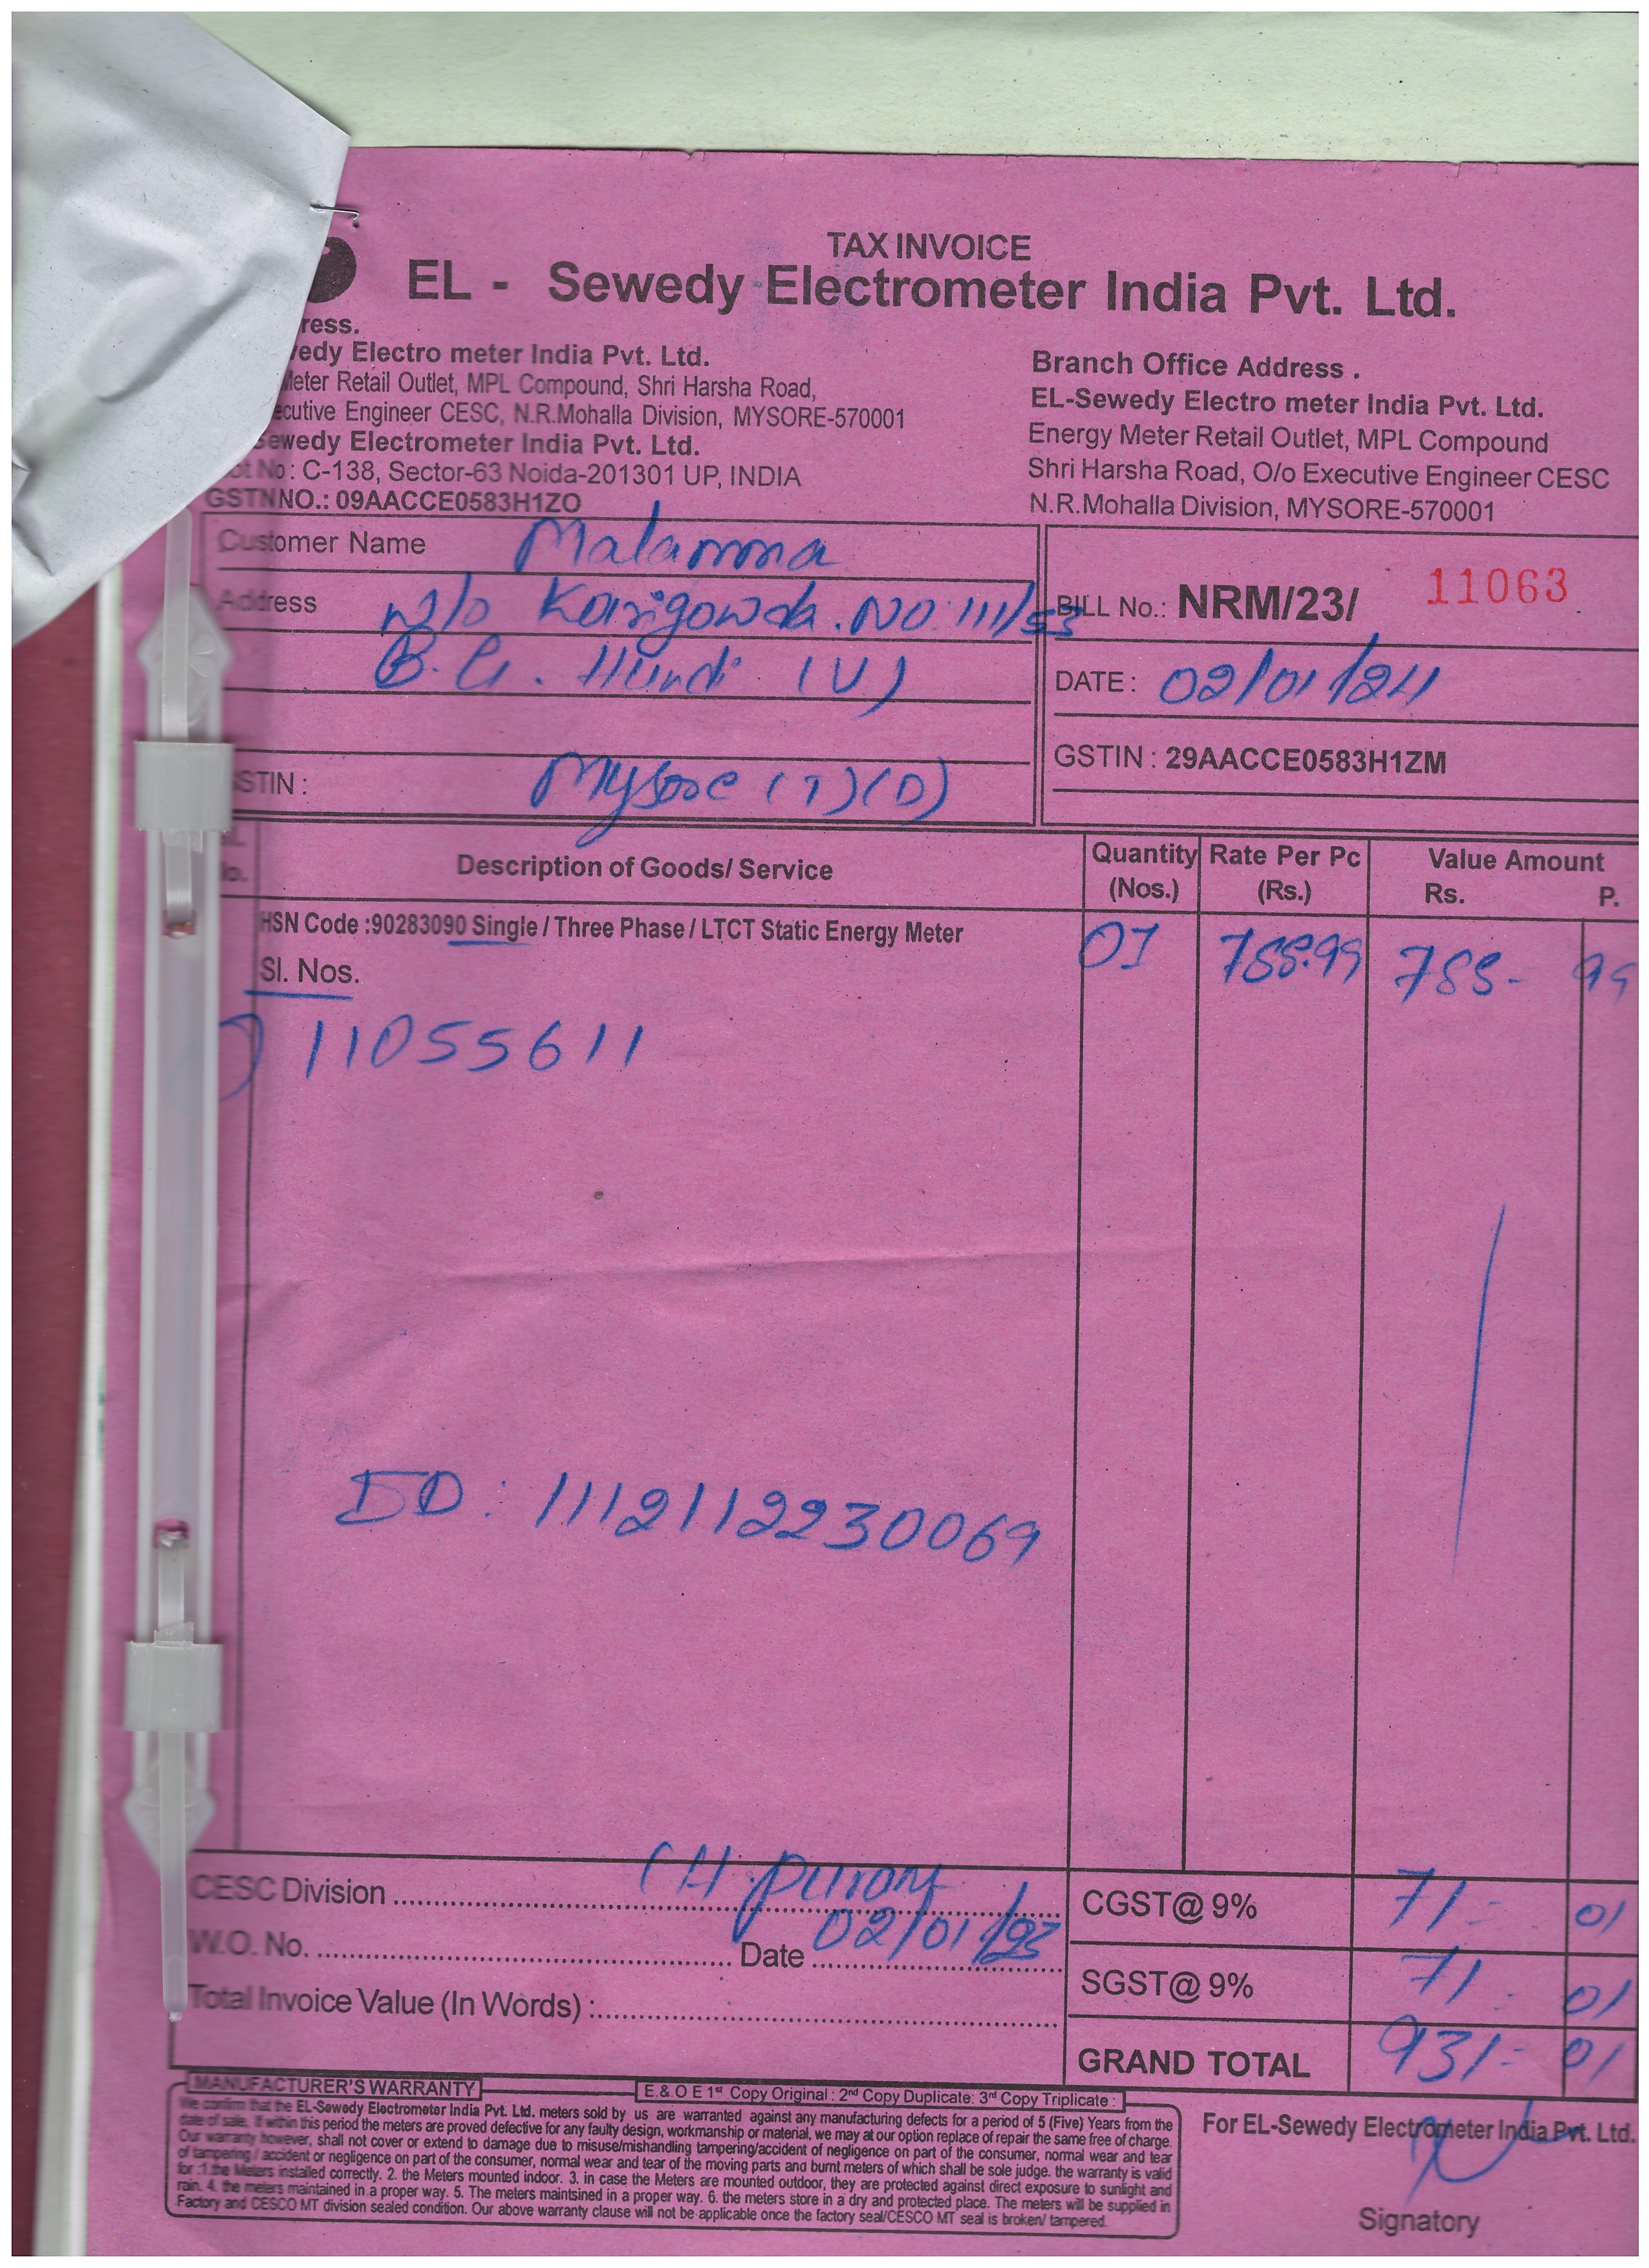 TAX INVOICE
EL - Sewedy Electrometer India Pvt. Ltd.
ress.
wedy Electro meter India Pvt. Ltd.
Meter Retail Outlet, MPL Compound, Shri Harsha Road,
ecutive Engineer CESC, N.R.Mohalla Division, MYSORE-570001
Sewedy Electrometer India Pvt. Ltd.
ot No: C-138, Sector-63 Noida-201301 UP, INDIA
GSTNNO.: 09AACCE0583H1ZO
Branch Office Address .
EL-Sewedy Electro meter India Pvt. Ltd.
Energy Meter Retail Outlet, MPL Compound
Shri Harsha Road, O/o Executive Engineer CESC
N.R.Mohalla Division, MYSORE-570001
Customer Name Malamma
Address W/o Karigowda. NO 111/53
B.G. Hundi (V)
GSTIN : Mysore (T)(D)
BILL No.: NRM/23/ 11063
DATE : 02/01/24
GSTIN : 29AACCE0583H1ZM
Sl. No. Description of Goods/ Service Quantity (Nos.) Rate Per Pc (Rs.) Value Amount Rs. P.
HSN Code :90283090 Single / Three Phase / LTCT Static Energy Meter 01 788.99 788- 99
Sl. Nos.
11055611
ID : 1112112230069
CESC Division
W.O. No. Date 02/01/23
Total Invoice Value (In Words) :
CGST@ 9% 71 - 01
SGST@ 9% 71 - 01
GRAND TOTAL 931 - 01
MANUFACTURER'S WARRANTY
E.& O E 1st Copy Original : 2nd Copy Duplicate: 3rd Copy Triplicate :
We confirm that the EL-Sewedy Electrometer India Pvt. Ltd. meters sold by us are warranted against any manufacturing defects for a period of 5 (Five) Years from the
date of sale. If within this period the meters are proved defective for any faulty design, workmanship or material, we may at our option replace of repair the same free of charge.
Our warranty however, shall not cover or extend to damage due to misuse/mishandling tampering/accident of negligence on part of the consumer, normal wear and tear
of tampering / accident or negligence on part of the consumer, normal wear and tear of the moving parts and burnt meters of which shall be sole judge. the warranty is valid
for :1.the Meters installed correctly. 2. the Meters mounted indoor. 3. in case the Meters are mounted outdoor, they are protected against direct exposure to sunlight and
rain. 4. the meters maintained in a proper way. 5. The meters maintsined in a proper way. 6. the meters store in a dry and protected place. The meters will be supplied in
Factory and CESCO MT division sealed condition. Our above warranty clause will not be applicable once the factory seal/CESCO MT seal is broken/ tampered.
For EL-Sewedy Electrometer India Pvt. Ltd.
Signatory